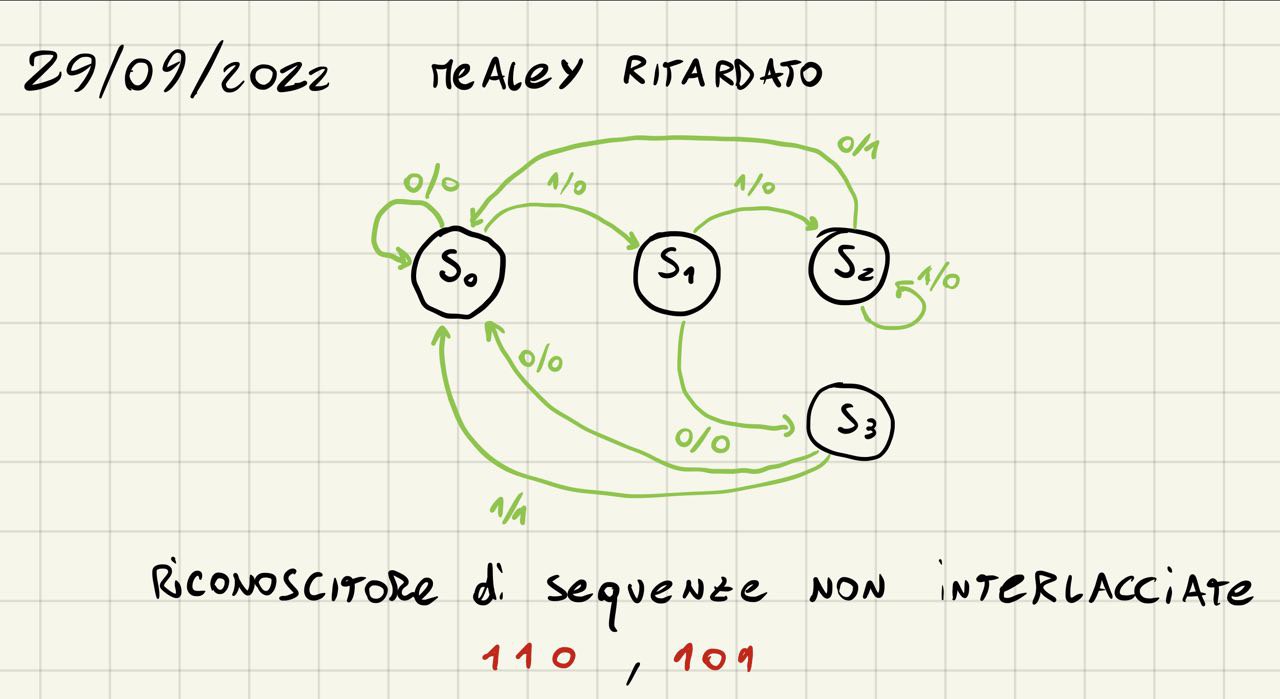 29/09/2022 MeAleY RITARDATO
0/1
0/0 1/0 1/0
S0 S1 S2
1/0
0/0
S3
0/0
1/1
RICONOSCITORE di sequenze NON INTERLACCIATE
110 , 101